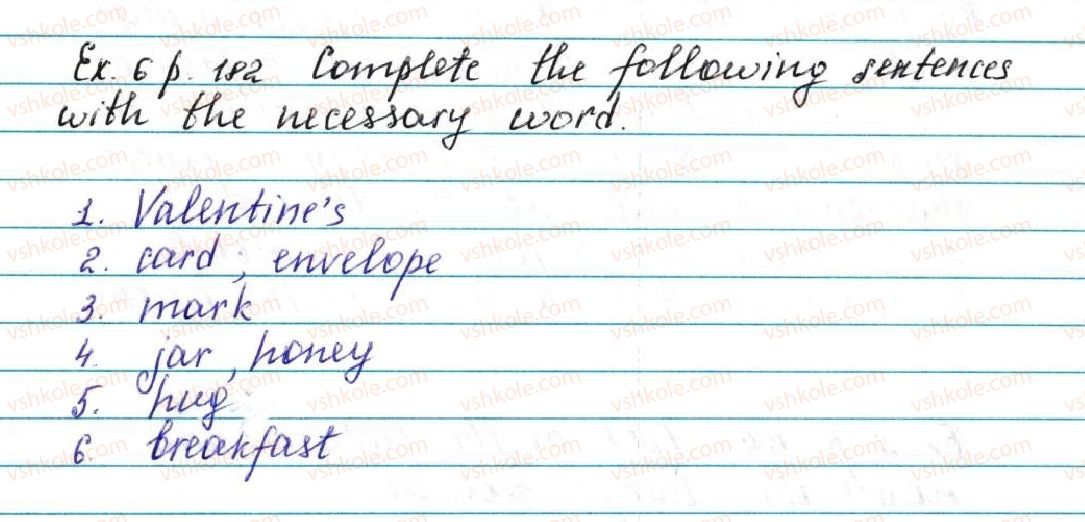 Ex. 6 p. 182 Complete the following sentences
with the necessary word.
1. Valentine's
2. card; envelope
3. mark
4. jar, honey
5. hug
6. breakfast